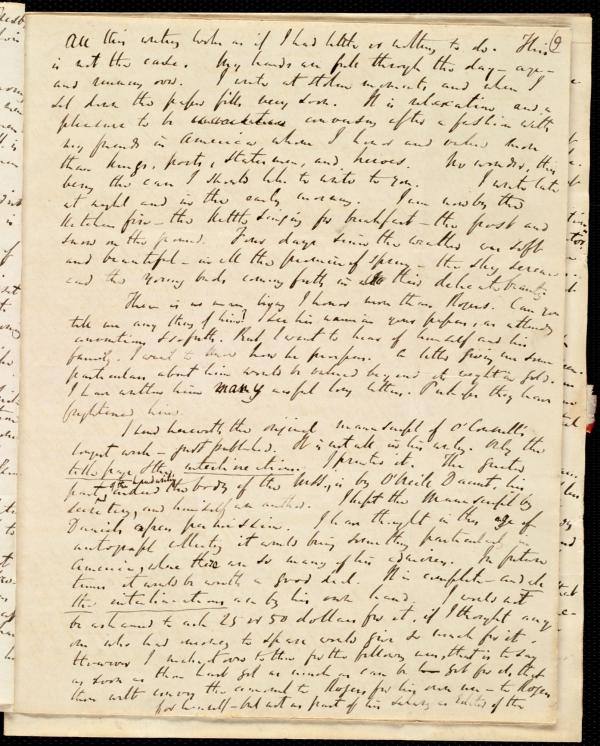 All this writing looks as if I had little or nothing to do. This 9
is not the case. My hands are full through the day – aye –
and running over. I write at stolen moments, and when I
sit down the paper fills very soon. It is relaxation and a
pleasure to be conversing after a fashion with
my friends in America whom I honor and value more
than Kings, poets, statesmen, and heroes. No wonder, this
being the case I should like to write to you. I write late
at night and in the early morning. I am now by the
Kitchen fire – the Kettle singing for breakfast – the frost and
snow on the ground. Four days since the weather was soft
and beautiful – in all the promise of spring – the sky serene
and the young buds coming forth in all their delicate beauty.
There is no man living I honor more than Rogers. Can you
tell me any thing of him? I see his name in your papers, as attending
conventions & so forth. But I want to hear of himself and his
family. I want to know how he prospers. A letter giving me some
particulars about him would be valued beyond its weight in gold.
I have written him many awful long letters. Perhaps they have
frightened him.
I send herewith the original manuscript of O'Connell's
longest work – just published. It is not all in his writing. Only the
title page, & the interlineations. I printed it. The greater
part indeed the body of the MSS, is by O'Neill Daunt, his
secretary, and himself an author. I kept the Manuscript by
Daniel's open permission. I have thought in this age of
autograph collecting it would bring something particularly in
America, where there are so many of his admirers. In future
times it would be worth a good deal. It is complete – and all
the interlineations are by his own hand. I would not
be ashamed to ask 25 or 50 dollars for it, if I thought any
one who had money to spare would give so much for it.
However I make it over to thee for the following uses, that is to say
as soon as thou hast got as much as can be got for it, that
thou wilt convey the amount to Rogers for his own use – to Rogers
for himself – but not as part of his salary as Editor of the